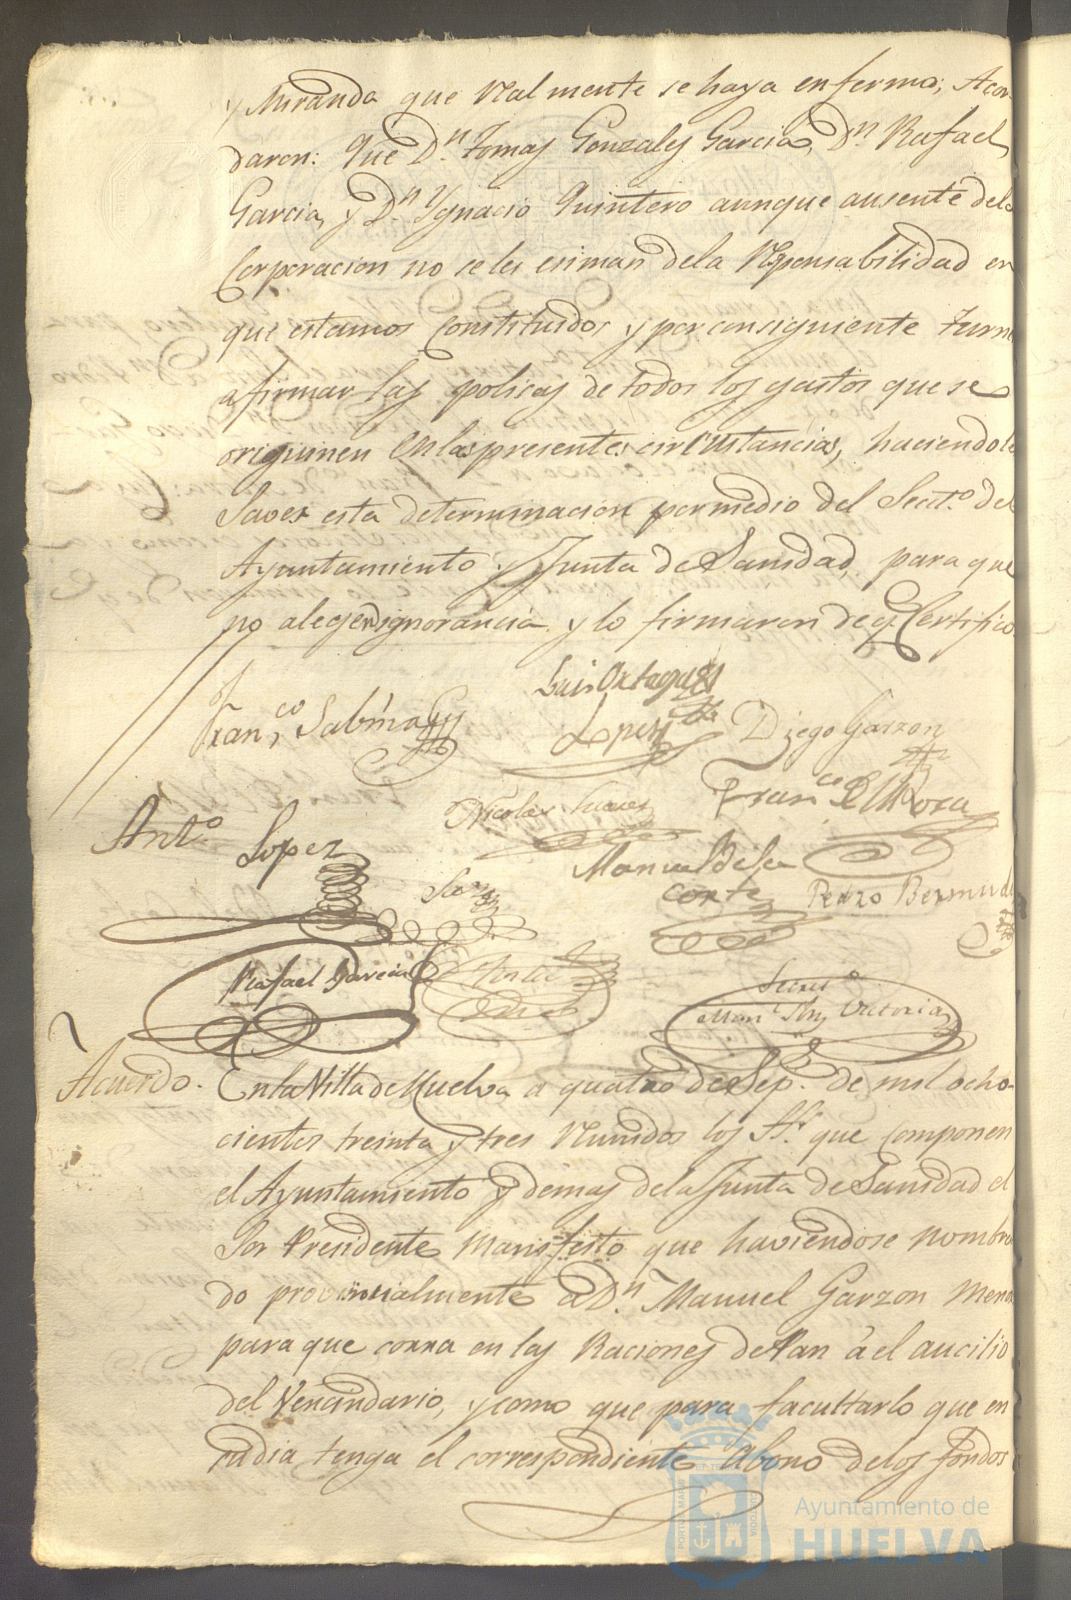 y Miranda que Realmente se haya enfermo; Acor-
daron: Que Dn. Tomas Gonzales Garcia, Dn. Rafael
Garcia, y Dn. Ygnacio Quintero aunque ausente dela
Corporacion no se les esiman dela Responsabilidad en
que estamos Constituidos y por consiguiente
afirmar las policas de todos los gastos que se
originen en las presentes circunstancias, haciendole
Saver esta determinacion por medio del Secret.o del
Ayuntamiento y Junta de Sanidad, para que
no alegen ignorancia y lo firmaron de q. Certifico
Franco. Sabina
Luis Ortega
Lopez
Diego Garzon
Anto. Lopez
Nicolas Suarez
Franco.
Manuel de la
Corte
Pedro Bermud
Rafael Garcia
Secret.o
Manl. Victoria
Acuerdo. En la Villa de Huelva a quatro de Sep.e de mil ocho-
cientos treinta y tres Reunidos los Sres. que Componen
el Ayuntamiento y demas dela Junta de Sanidad el
Sor Presidente Manifesto que haviendose nombra
do provisialmente a Dn. Manuel Garzon Menor
para que corra en las Raciones de Pan á el aucilio
del Vecindario, y como que para facultarlo que en
cadia tenga el correspondiente Abono delos fondos
Ayuntamiento de
HUELVA